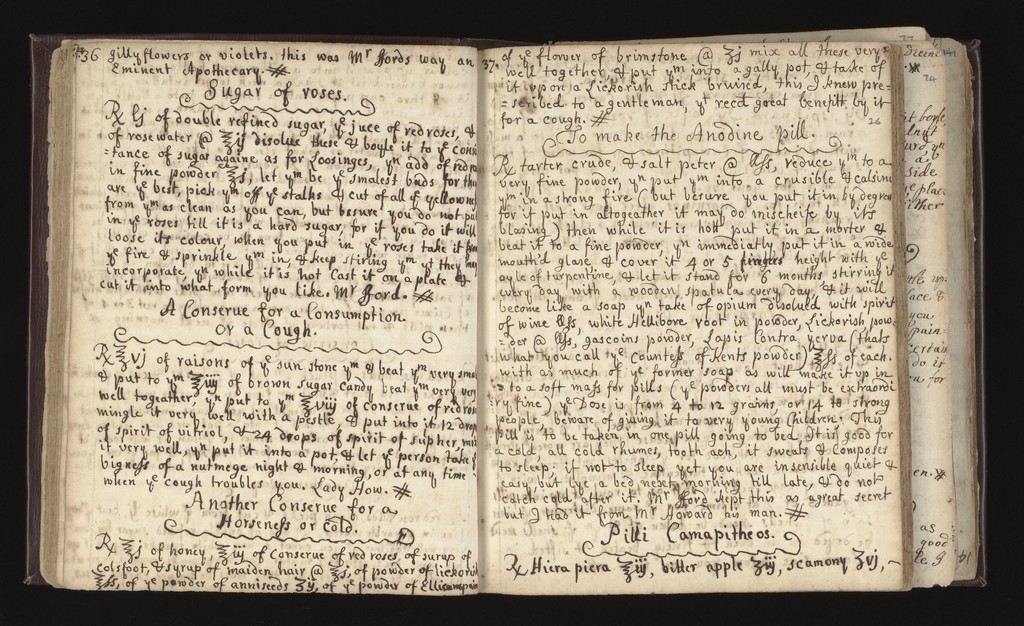 36 gillyflowers or violets. this was Mr ffords way an
Eminent Apothecary.
Sugar of roses.
℞ lj of double refined sugar, ye juce of red roses, &
of rosewater @ ℥ij disolue these & boyle it to ye Consis
=tance of sugar againe as for Loosinges, yn add of red ro
in fine powder ℥s, let ym be ye smalest buds for the
are ye best, pick ym off ye stalks & cut of all ye yellow
from ym as clean as you can, but besure you do not put
in ye roses till it is a hard sugar, for if you do it will
loose its colour, when you put in ye roses take it from
ye fire & sprinkle ym in, & keep stiring ym yt they may
incorporate yn while it is hot Cast it on a plate &
cut it into what form you like. Mr fford.
A Conserue for a Consumption.
or a Cough.
℞ ℥vj of raisons of ye sun stone ym & beat ym very smal
& put to ym ℥iij of brown sugar candy beat ym very very
well togeather, yn put to ym ℥viij of conserue of red ro
mingle it very well with a pestle, & put into it 12 drops
of spirit of vitriol, & 24 drops of spirit of supher, mix
it very well, yn put it into a pot, & let ye person take ye
bigness of a nutmege night & morning, or at any time
when ye cough troubles you. Lady How.
Another Conserue for a
Horseness or cold.
℞ ℥j of honey, ℥iij of Conserue of red roses, of surup of
Colsfoot, & syrup of maiden hair @ ℥s, of powder of lickorish
℥ss, of ye powder of anniseeds ʒij, of ye powder of Ellicompain
37. of ye flower of brimstone @ ʒj mix all these very
well together, & put ym into a gally pot, & take of
it upon a Lickorish stick bruised, this I knew pre=
=scribed to a gentleman, yt recd great benefitt by it
for a cough.
26
To make the Anodine pill.
℞ tarter crude, & salt peter @ lss, reduce ym to a
very fine powder, yn put ym into a crusible & calsine
ym in a strong fire (but besure you put it in by degrees
for if put in altogeather it may do mischeife by its
blasing) then while it is hott put it in a morter &
beat it to a fine powder, yn immediatly put it in a wide
mouth'd glase, & cover it 4 or 5 fingers height with ye
oyle of turpentine, & let it stand for 6 months stirring it
every day with a wooden spatula every day, & it will
become like a soap yn take of opium disolued with spirit
of wine lss, white Hellibore root in powder, Lickorish pow=
=der @ lss, gascoins powder, Lapis Contra yerva (thats
what you call ye Countess of Kents powder) ℥ss of each.
with as much of ye former soap as will make it up in
=to a soft mass for pills (ye powders all must be extraordi
=ry fine) ye Dose is from 4 to 12 grains, or 14 to strong
people, beware of giving it to very young Children. This
pill is to be taken in one pill going to bed. It is good for
a cold all cold rhumes, tooth ach, it sweats & composes
to sleep: if not to sleep yet you are insensible quiet &
easy, but lye a bed next morning till late, & do not
catch cold after it. Mr fford kept this as a great secret
but I had it from Mr Howard his man.
Pilli Camapitheos.
℞ Hiera piera ℥iij, bitter apple ℥iij, scamony ʒvj,